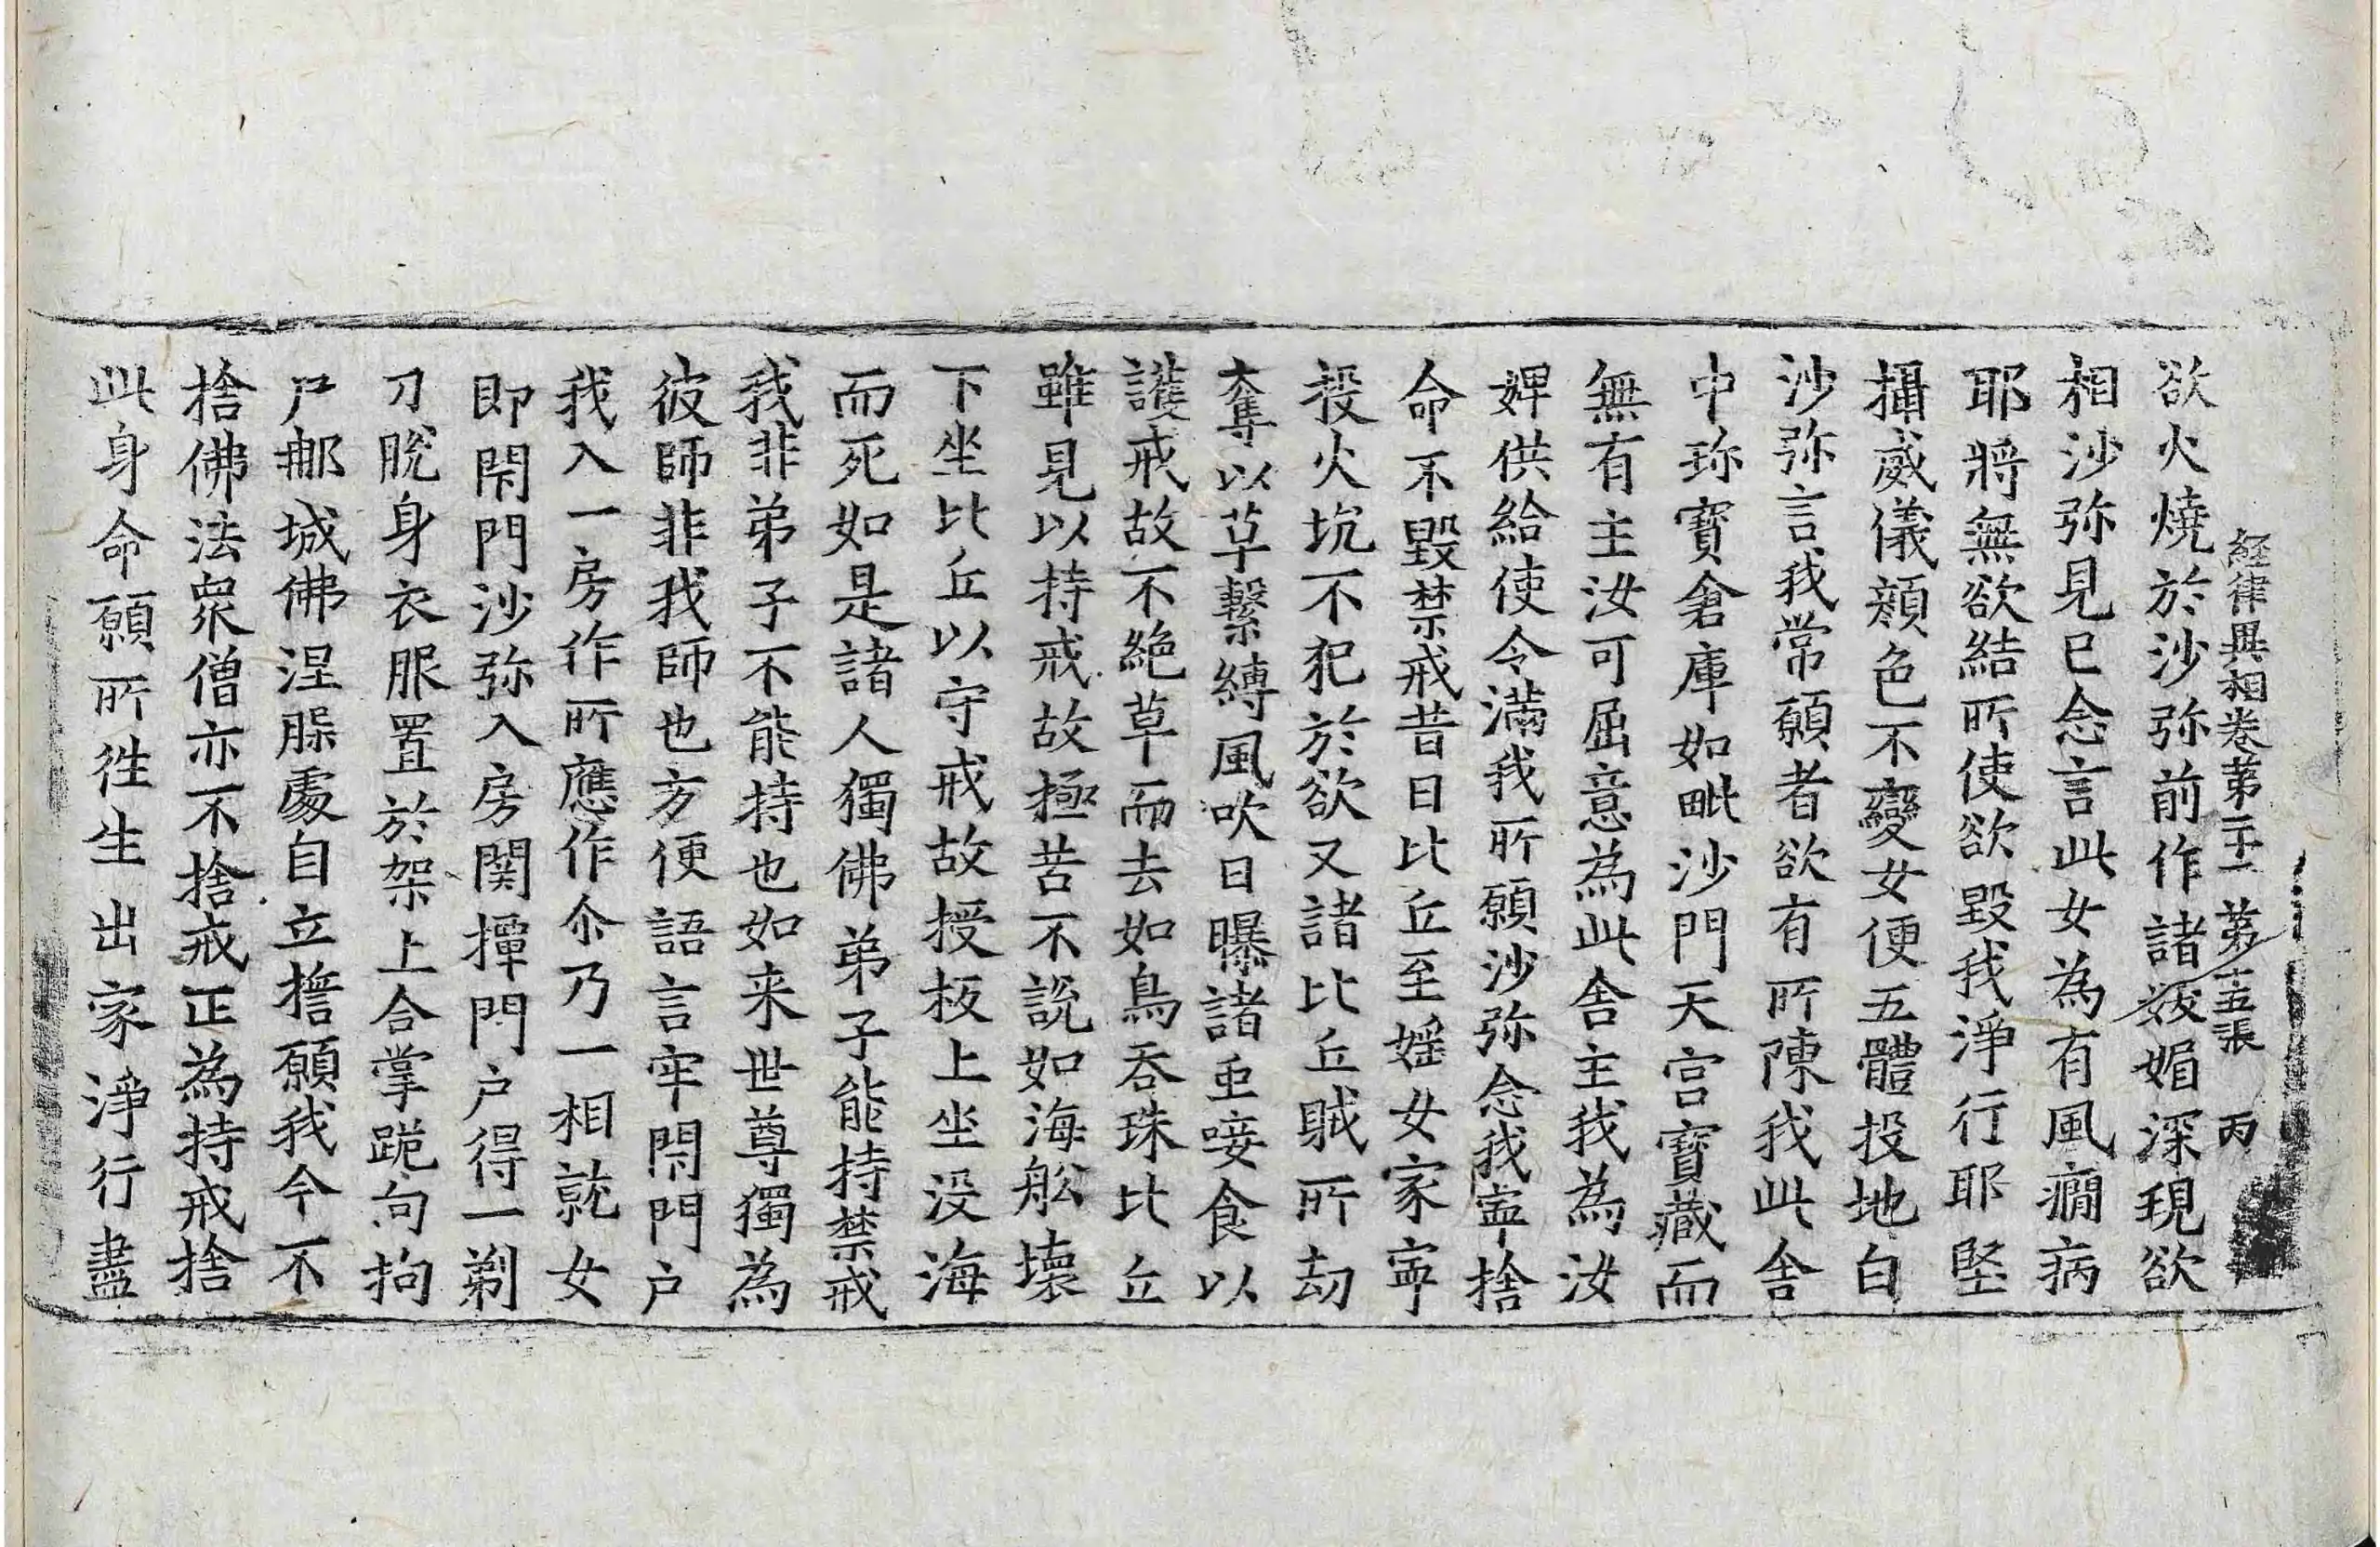 欲火燒於沙弥前作諸妭媚深現欲
經律異相卷苐二十二 苐十五張 丙
相沙弥見已念言此女為有風癎病
耶將無欲結所使欲毀我淨行耶堅
攝威儀顏色不變女便五體投地白
沙弥言我常願者欲有所陳我此舍
中珎寶倉庫如毗沙門天宮寶藏而
無有主汝可屈意為此舍主我為汝
婢供給使令滿我所願沙弥念我寧捨
命不毀禁戒昔日比丘至婬女家寧
投火坑不犯於欲又諸比丘賊所劫
奪以草繫縛風吹日曝諸虫唼食以
護戒故不絕草而去如鳥吞珠比丘
雖見以持戒故極苦不說如海舩壞
下坐比丘以守戒故授板上坐沒海
而死如是諸人獨佛弟子能持禁戒
我非弟子不能持也如来世尊獨為
彼師非我師也方便語言牢閇門戶
我入一房作所應作尒乃一相就女
即閇門沙弥入房関撣門戶得一剃
刀脫身衣服置於架上合掌跪向拘
尸𨙻城佛涅脲處自立擔願我今不
捨佛法衆僧亦不捨戒正為持戒捨
此身命願所徃生出家淨行盡